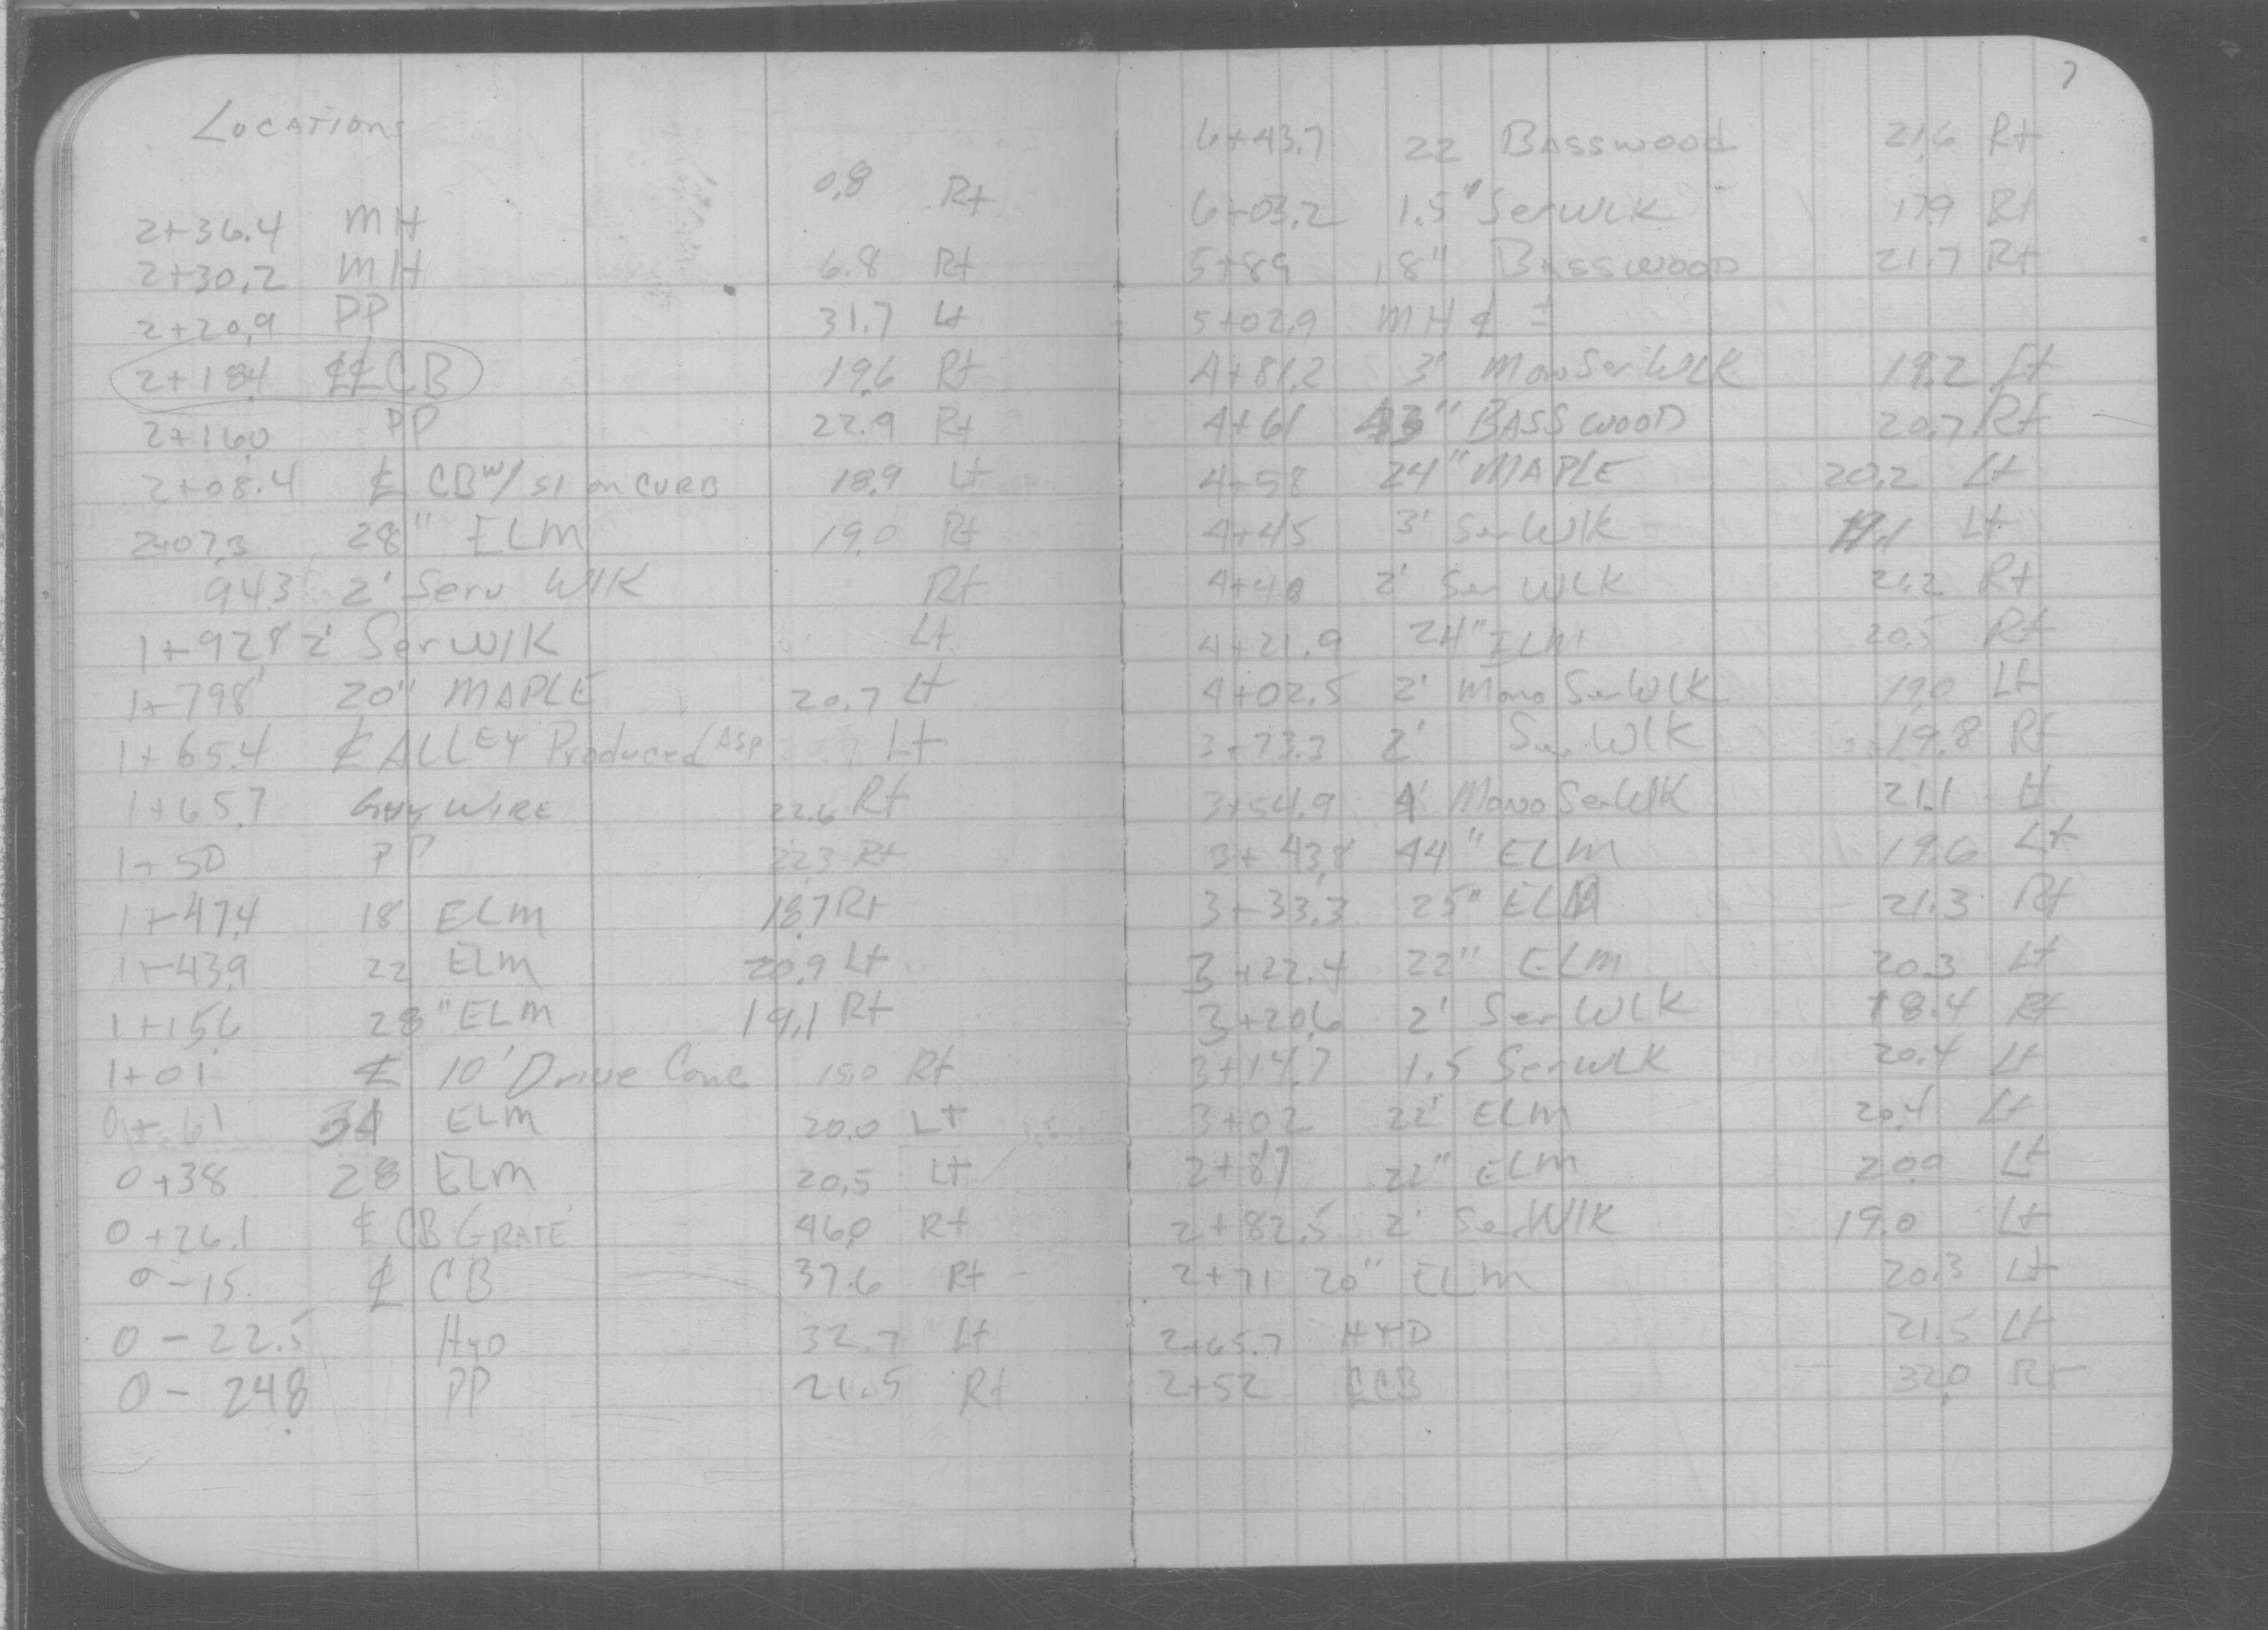 Locations
2+36.4 MH 0.8 Rt
2+30.2 MH 6.8 Rt
2+20.9 PP 31.7 Lt
2+18.4 ℄ CB 19.6 Rt
2+16.0 PP 22.9 Rt
2+08.4 ℄ CB w/ SI on CURB 18.9 Lt
2+07.3 28" ELM 19.0 Rt
94.3 2' Serv WlK Rt
1+92.8 2' Ser WlK Lt
1+79.8 20" MAPLE 20.7 Lt
1+65.4 ℄ ALLEY Produced Asp Lt
1+65.7 Guy WIRE 22.6 Rt
1+50 PP 22.3 Rt
1+47.4 18 ELM 18.7 Rt
1+43.9 22 ELM 20.9 Lt
1+15.6 28" ELM 19.1 Rt
1+01 ℄ 10' Drive Conc 19.0 Rt
0+61 ELM 20.0 Lt
0+38 28 ELM 20.5 Lt
0+26.1 ℄ CB GRATE 46.0 Rt
0-15. ℄ CB 37.6 Rt
0-22.5 HYD 32.7 Lt
0-24.8 PP 21.5 Rt
7
6+43.7 22 BASSWOOD 21.6 Rt
6+03.2 1.5' Ser WLK 17.9 Rt
5+89 18" BASSWOOD 21.7 Rt
5+02.9 MH ℄ =
4+81.2 3' Mono Ser WLK 19.2 Lt
4+61 43" BASSWOOD 20.7 Rt
4+58 24" MAPLE 20.2 Lt
4+45 3' Ser WlK Lt
4+40 2' Ser WLK 21.2 Rt
4+21.9 24" ELM 20.5 Rt
4+02.5 2' Mono Ser WLK 19.0 Lt
3+73.3 2' Ser WlK 19.8 Rt
3+54.9 4' Mono Ser WlK 21.1 Lt
3+43.8 44" ELM 19.6 Lt
3+33.3 25" ELM 21.3 Rt
3+22.4 22" ELM 20.3 Lt
3+20.6 2' Ser WLK 18.4 Rt
3+14.7 1.5 Ser WLK 20.4 Lt
3+02 22' ELM 20.4 Lt
2+87 22" ELM 20.9 Lt
2+82.5 2' Ser WlK 19.0 Lt
2+71 20" ELM 20.3 Lt
2+65.7 HYD 21.5 Lt
2+52 ℄CB 32.0 Rt